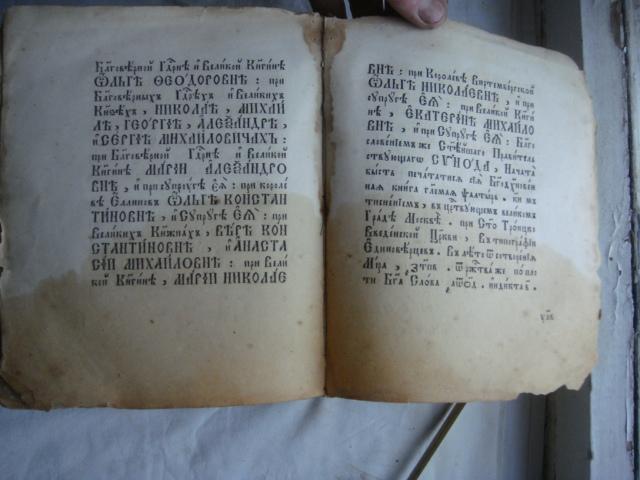 Благовѣрной Гдⷭ҇рнѣ и҆ Великой Кн҃гинѣ
Ѻ҆ЛЬГѢ ѲЕѺДОРОВНѢ : при
Благовѣрныхъ Гдⷭ҇рехъ и҆ Великихъ
Кн҃ѕехъ, НИКОЛАѢ, МИХАИ
ЛѢ, ГЕѠРГІѢ, АЛЕѮАНДРѢ,
и҆ СЕРГІѢ МИХАИЛОВИЧАХЪ :
при Благовѣрной Гдⷭ҇рнѣ и҆ Великой
Кн҃гинѣ МАРІИ АЛЕѮАНДРО
ВНѢ, и҆ при супрꙋгѣ є҆ѧ̀ : при короле
вѣ Єллиновъ Ѻ҆ЛЬГѢ КОНСТАН
ТИНОВНѢ, и҆ Сꙋпрꙋгѣ ЄѦ : при
Великихъ Кн҃жнахъ, ВѢРѢ КОН
СТАНТИНОВНѢ, и҆ АНАСТА
СІИ МИХАЙЛОВНѢ : при Вели
кой Кн҃гинѣ, МАРІИ НИКОЛАЕ
ВНѢ : при Королевѣ Виртембергской
Ѻ҆ЛЬГѢ НИКОЛАЕВНѢ, и҆ при
сꙋпрꙋгѣ ЄѦ : при Великой Кн҃ги
нѣ, ЕКАТЕРИНѢ МИХАЙЛО
ВНѢ, и҆ при Сꙋпрꙋгѣ ЄѦ : Благо
словенїемъ же Ст҃ѣйшагѡ Правитель
ствꙋющагѡ СѴНОДА, Начата
бысть печататисѧ сїѧ Бг҃одꙋхновен
наѧ книга гл҃емаѧ ѱалтырь.
тисненїемъ, въ црⷭ҇твꙋющемъ великомъ
Градѣ Москвѣ. при Ст҃о Троицко
Введенской Цр҃кви, въ типографїи
Єдиновѣрцевъ. Въ лѣто ѿ сотворенїѧ
Мїра, ѿ Ржⷭ҇тва же по пло
ти Бг҃а Слова, индикта